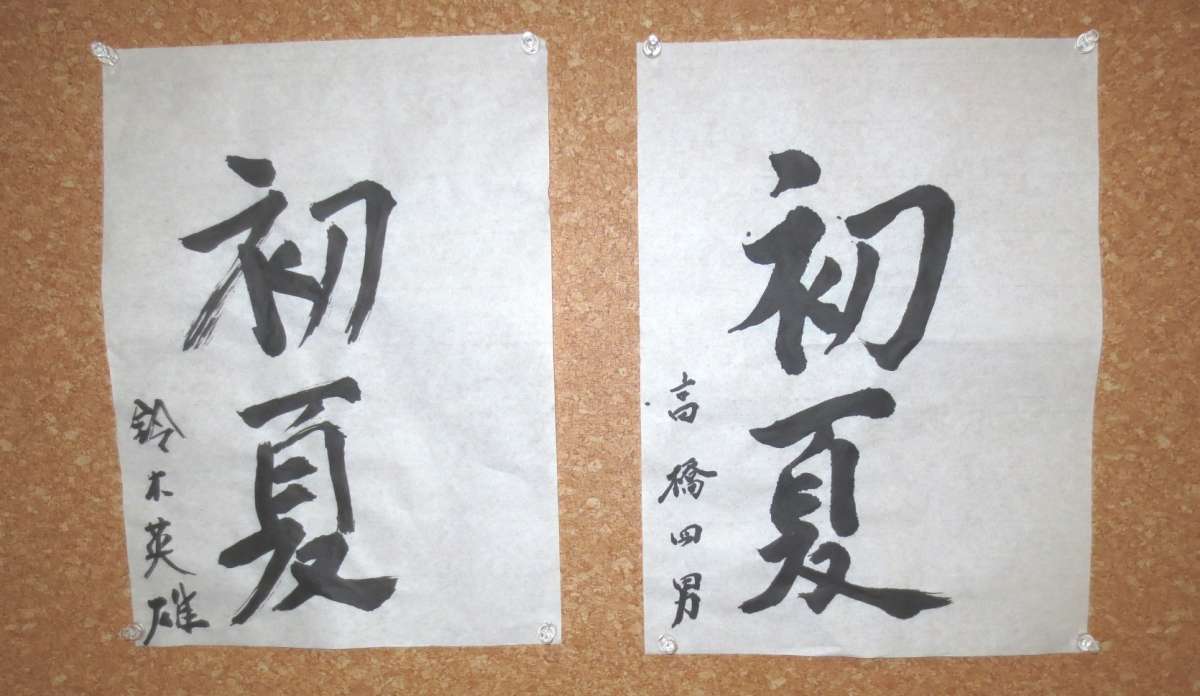 初夏
鈴木英雄
初夏
高橋四男